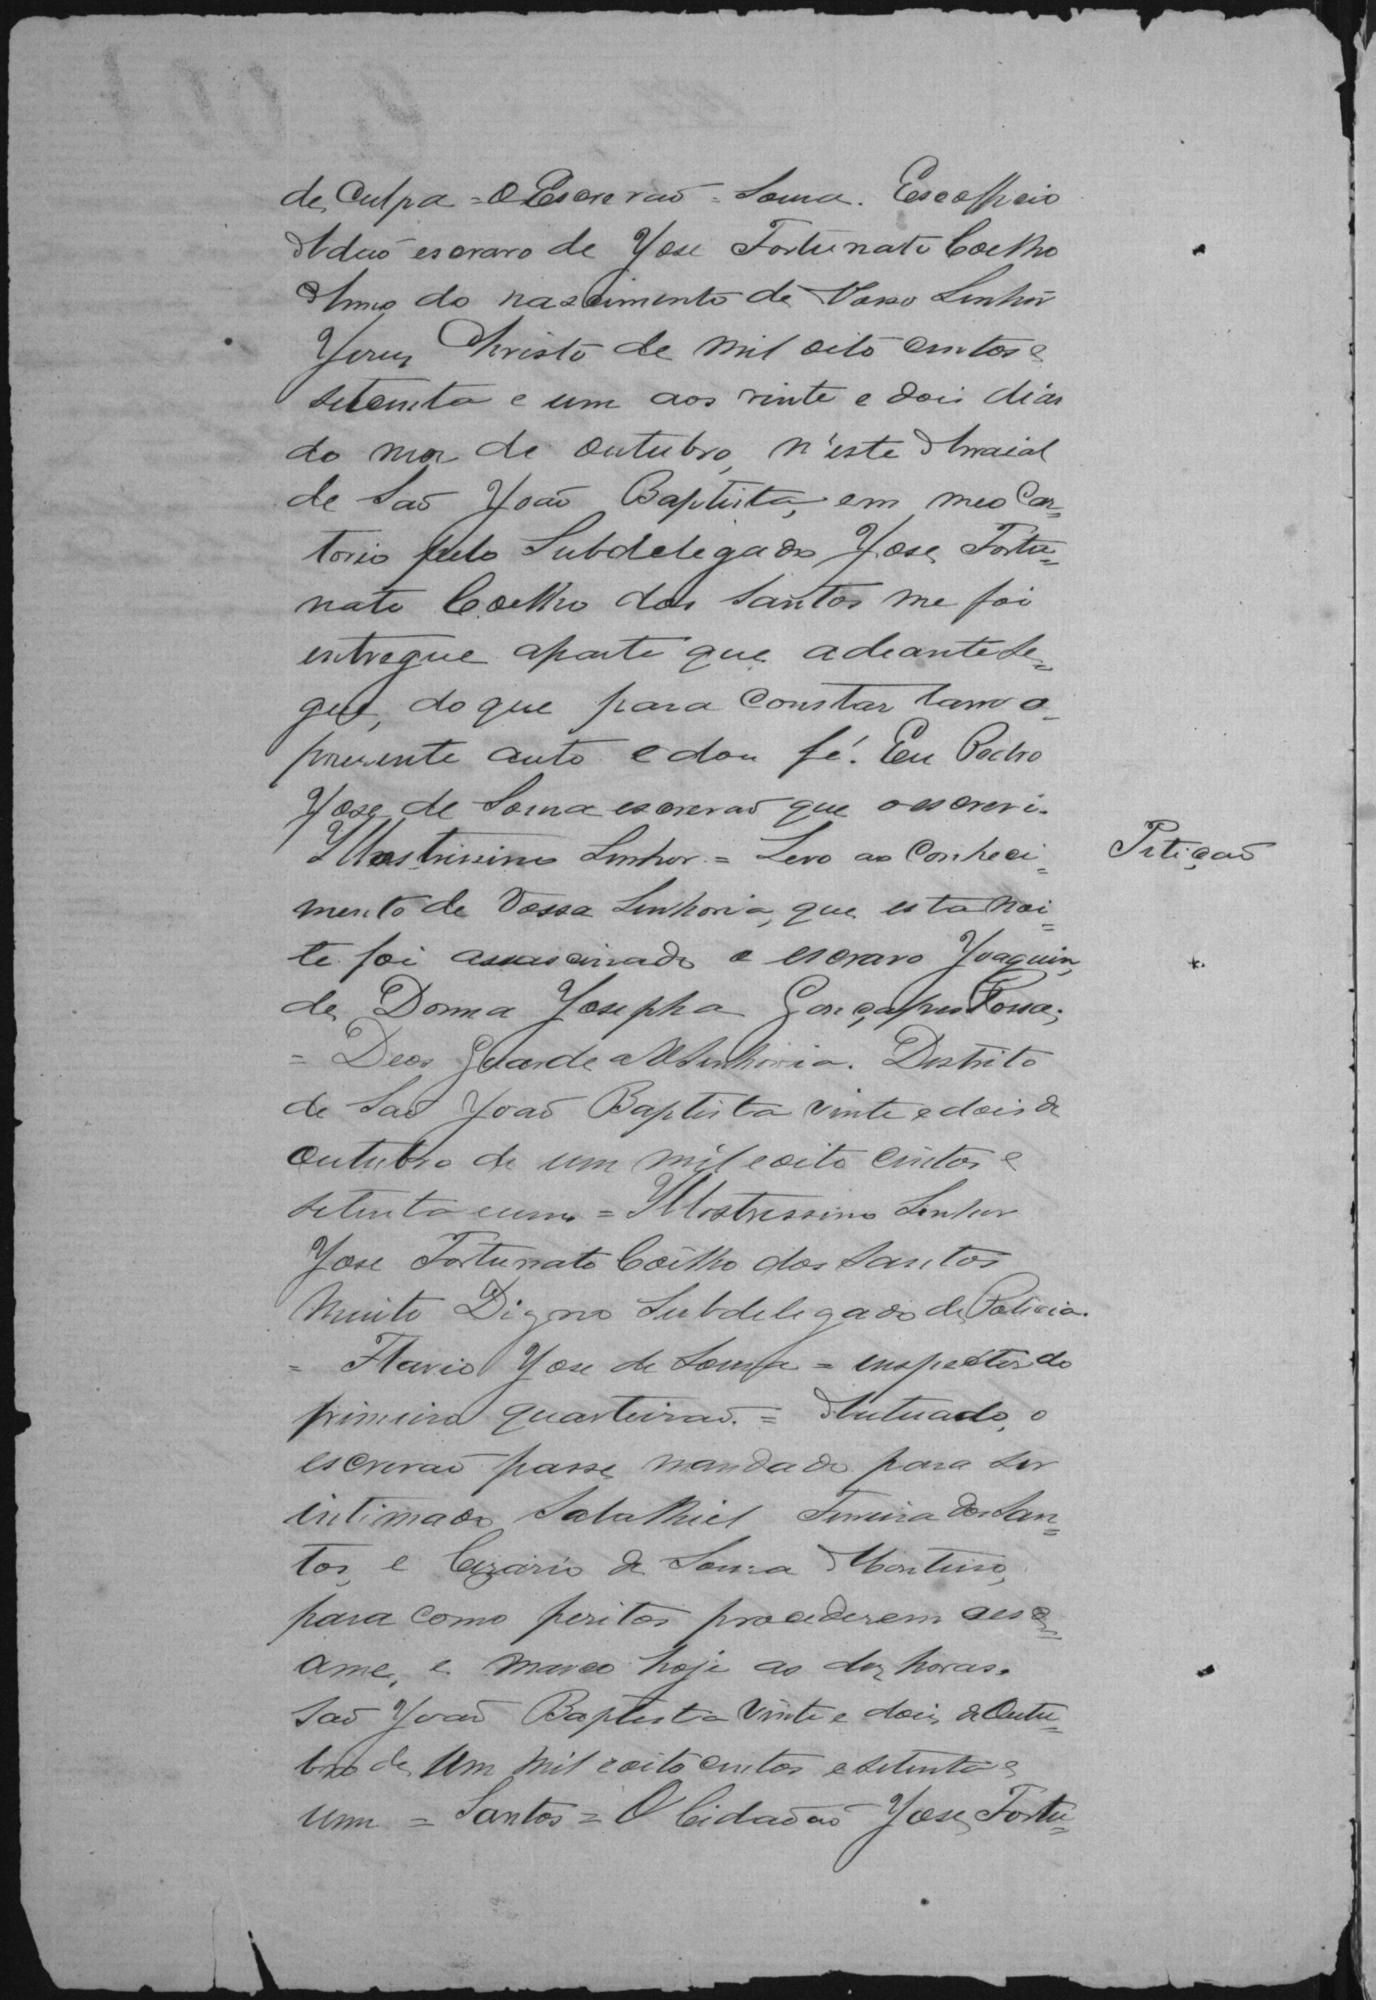 de culpa = O Escrevaõ = Souza.
Adaõ escravo de Jose Fortunato Coelho
Anno do nascimento de Nosso Senhor
Jesus Christo de mil oito centos e
setenta e um aos vinte e dois dias
do mez de Outubro, n'este Arraial
de Saõ Joaõ Baptista, em meo Car=
torio pelo Subdelegado Jose Fortu=
nato Coelho dos Santos me foi
entregue aparte que adeante se=
gue, do que para constar lavro o
presente auto e dou fé. Eu Pedro
Jose de Souza escrevaõ que o escrevi.
Illustrissimo Senhor = Levo ao conheci=
Petiçaõ
mento de Vossa Senhoria, que esta noi=
te foi assascinado o escravo Joaquim,
de Donna Josepha Gonçalves
= Deos Guarde a VSenhoria. Destrito
de Saõ Joaõ Baptista vinte e dois de
Outubro de um mil e oito centos e
setenta e um = Illostressimo Senhor
Jose Fortunato Coelho dos Santos
Muito Digno Subdelegado de Policia.
= Flavio Jose de Souza = enspector do
primeiro quarteiraõ. = Autuado, o
escrevaõ passe mandado para ser
intimado Salathiel Ferreira dos San=
tos, e Cezario de Souza Monteiro,
para como peritos procederem aes=
ame, e marco hoje as dez horas.
Saõ Joaõ Baptista vinte e dois de Outu=
bro de um mil e oito centos e setenta e
um = Santos = O Cidadaõ Jose Fortu=